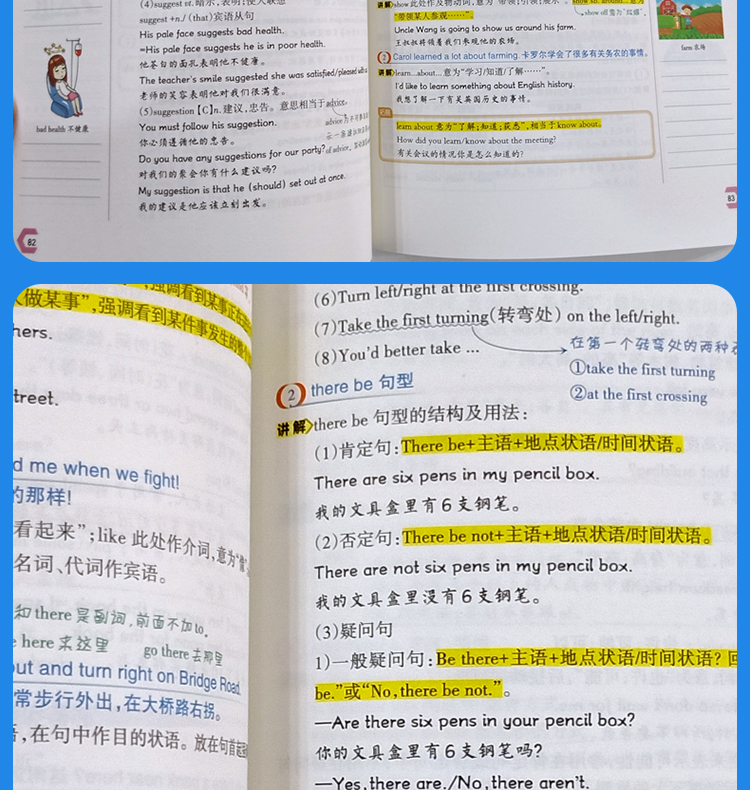 (4)suggest vt.暗示,表明;使人联想
suggest +n./ (that)宾语从句
His pale face suggests bad health.
=His pale face suggests he is in poor health.
他苍白的面孔表明他不健康。
The teacher's smile suggested she was satisfied/pleased
老师的笑容表明他对我们很满意。
(5)suggestion【C】n.建议,忠告。意思相当于advice。
You must follow his suggestion.
你必须遵循他的忠告。
Do you have any suggestions for our party?
对我们的聚会你有什么建议吗?
My suggestion is that he (should) set out at once.
我的建议是他应该立刻出发。
bad health 不健康
82
讲解 show 此处作及物动词,意为
“带领某人参观……”。
show off 意为“炫耀”。
Uncle Wang is going to show us around his farm.
王叔叔将领着我们参观他的农场。
2 Carol learned a lot about farming.卡罗尔学会了很多有关务农的事情。
讲解 learn...about...意为“学习/知道/了解……”。
I'd like to learn something about English history.
我想了解一下有关英国历史的事情。
learn about 意为“了解;知道;获悉”,相当于know about。
How did you learn/know about the meeting?
有关会议的情况你是怎么知道的?
farm 农场
83
,强调看到某事正在
人做某事”,强调看到某件事发生的整个
hers.
treet.
d me when we fight!
的那样!
看起来”;like 此处作介词,意为“像
名词、代词作宾语。
和 there 是副词,前面不加to。
here 来这里 go there 去那里
out and turn right on Bridge Road.
常步行外出,在大桥路右拐。
,在句中作目的状语。放在句首起
(6)Turn left/right at the first crossing.
(7)Take the first turning(转弯处) on the left/right.
(8)You'd better take ...
在第一个转弯处的两种
①take the first turning
②at the first crossing
2 there be 句型
讲解 there be 句型的结构及用法:
(1)肯定句:There be+主语+地点状语/时间状语。
There are six pens in my pencil box.
我的文具盒里有6支钢笔。
(2)否定句:There be not+主语+地点状语/时间状语。
There are not six pens in my pencil box.
我的文具盒里没有6支钢笔。
(3)疑问句
1)一般疑问句:Be there+主语+地点状语/时间状语?回
be.”或“No,there be not.”。
—Are there six pens in your pencil box?
你的文具盒里有6支钢笔吗?
—Yes,there are./No,there aren't.